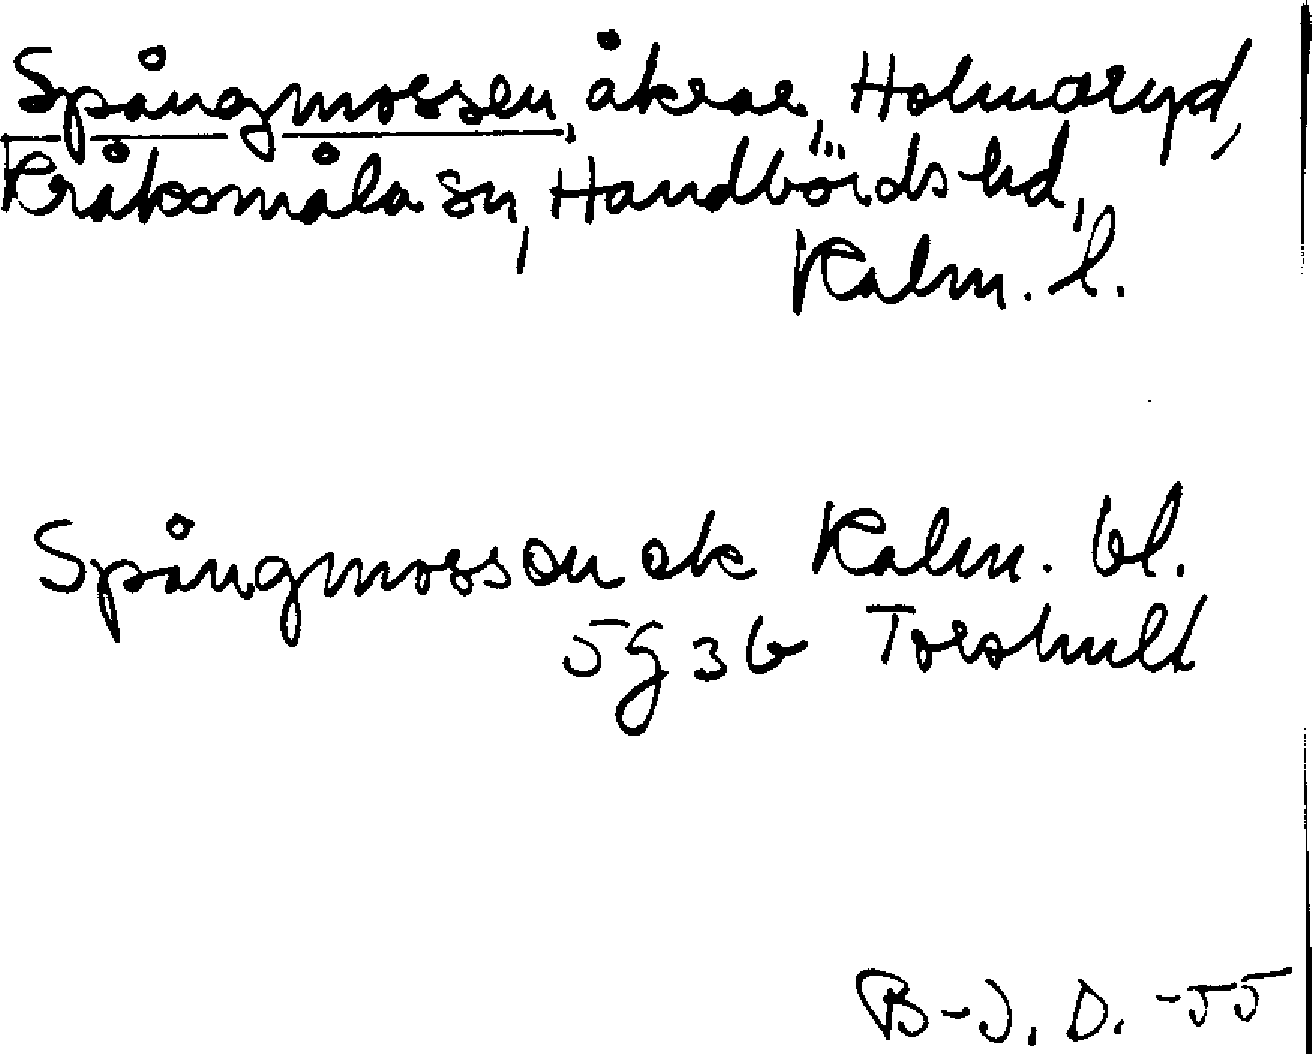 Spångmossen, åkrar, Holmaryd,
Kråksmåla sn, Handbörds hd,
Kalm. l.
Spångmossen ek Kalm. bl.
5g3b Torshult
B-J. D. -55